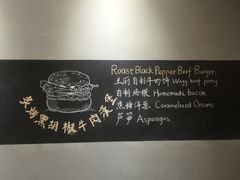 Roast Black Pepper Beef Burger.
自制牛肉饼 Wagy beef patty
自制培根 Homemade bacon
焦糖洋葱 Caramelised Onions
芦笋 Asparagus
炙烤黑胡椒牛肉汉堡